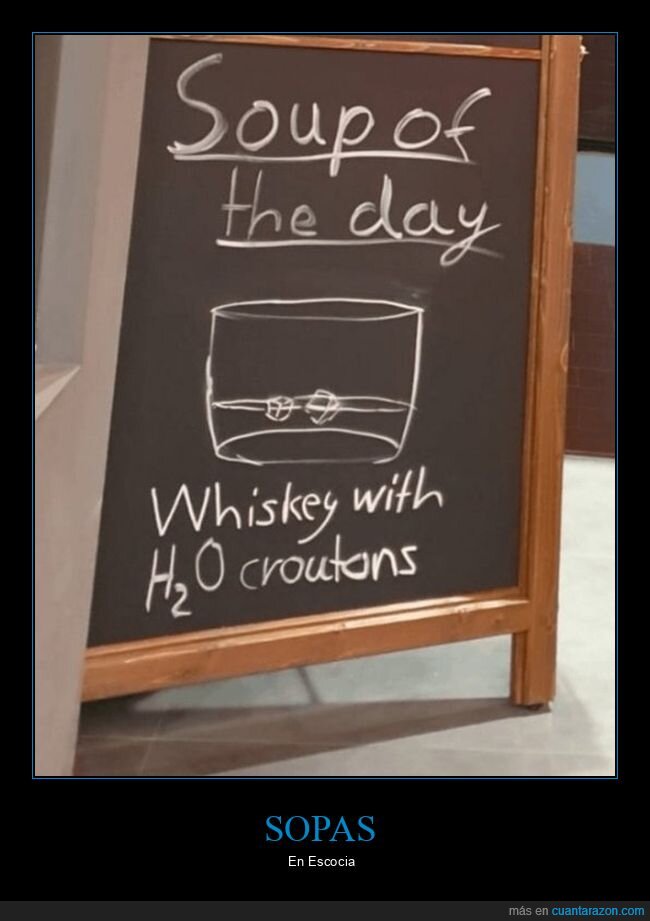 Soup of
the day
Whiskey with
H₂O croutons
SOPAS
En Escocia
más en cuantarazon.com